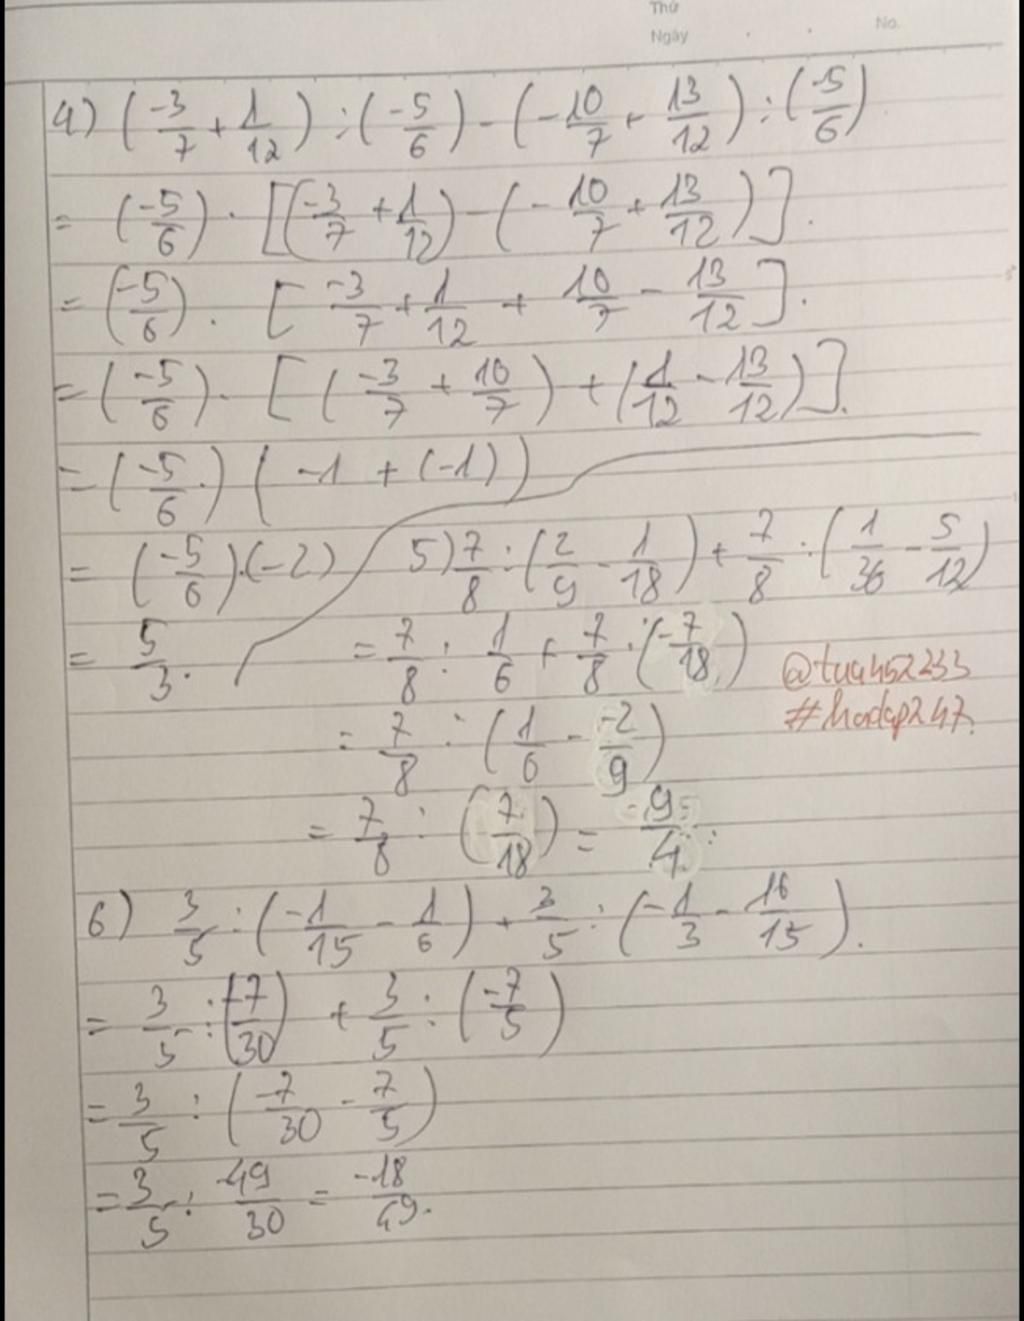 Thứ
Ngày No.
4) (-3/7 + 1/12) : (-5/6) - (-10/7 + 13/12) : (-5/6)
= (-5/6) . [(-3/7 + 1/12) - (-10/7 + 13/12)].
= (-5/6) . [-3/7 + 1/12 + 10/7 - 13/12].
= (-5/6) . [(-3/7 + 10/7) + (1/12 - 13/12)].
= (-5/6.) (-1 + (-1))
= (-5/6).(-2)
= 5/3.
5) 7/8 : (2/9 - 1/18) + 7/8 : (1/36 - 5/12)
= 7/8 : 1/6 + 7/8 : (-7/18)
= 7/8 : (1/6 - -2/9)
= 7/8 : (7/18) = -9/4
@tua452233
#hoidap247.
6) 3/5 : (-1/15 - 1/6) + 3/5 : (-1/3 - 16/15).
= 3/5 : (-7/30) + 3/5 : (-7/5)
= 3/5 : (-7/30 - 7/5)
= 3/5 : -49/30 = -18/49.